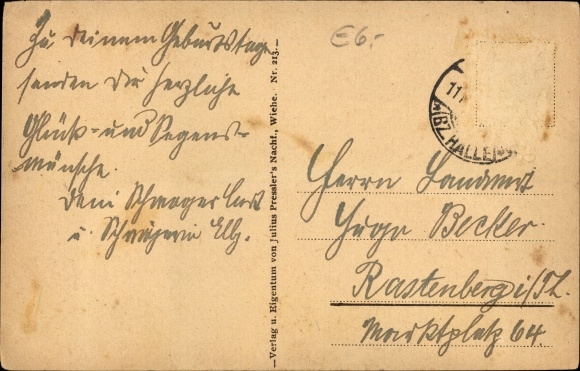 Zu Deinem Geburtstage
senden Dir herzliche
Glück- und Segens-
wünsche.
Dein Schwager
u. Schwägerin Elly.
E6.-
—Verlag u. Eigentum von Julius Pressler's Nachf., Wiehe. Nr. 213.—
11.
(BZ. HALLE)
Herrn
Hugo Becker
Rastenberg i/Th.
Marktplatz 64